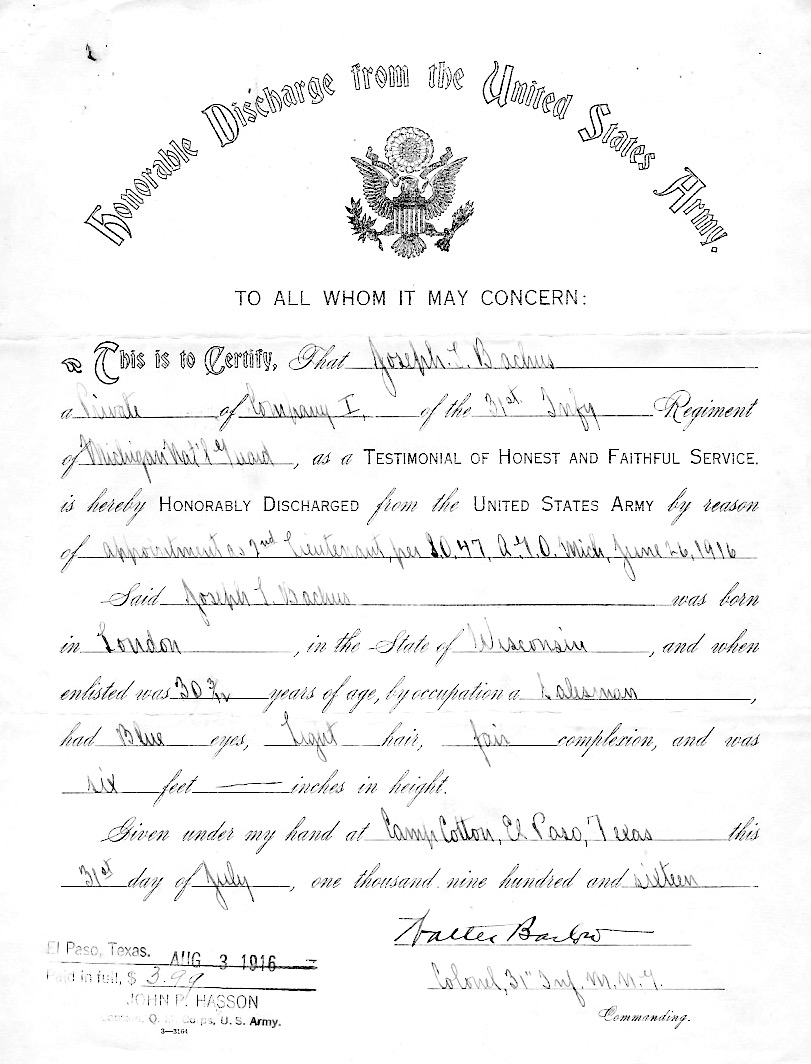 Honorable Discharge from the United States Army.
TO ALL WHOM IT MAY CONCERN:
This is to Certify, That Joseph. L. Bachus
a Private of Company I, of the 31st. Infy Regiment
of Michigan Nat'l Guard, as a TESTIMONIAL OF HONEST AND FAITHFUL SERVICE.
is hereby HONORABLY DISCHARGED from the UNITED STATES ARMY by reason
of appointment as 2nd Lieutenant, per S.O. 47, A.G.O. Mich, June 26, 1916
Said Joseph L. Bachus was born
in London, in the State of Wisconsin, and when
enlisted was 30 years of age, by occupation a Salesman,
had Blue eyes, Light hair, fair complexion, and was
six feet — inches in height.
Given under my hand at Camp Cotton, El Paso, Texas this
31st day of July, one thousand nine hundred and sixteen
Walter Barlow
Colonel, 31" Inf. M.N.G.
Commanding.
El Paso, Texas. AUG 3 1916
Paid in full, $ 3.99
JOHN P. HASSON
Q. M. Corps, U. S. Army.
3—3164